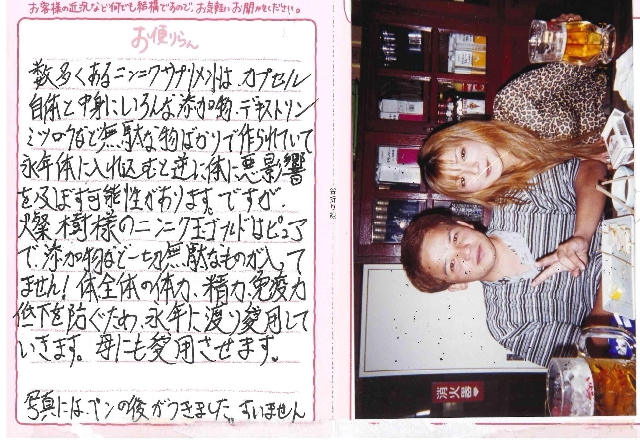 お客様の近況など何でも結構ですので、お気軽にお聞かせください。
お便りらん
数多くあるニンニクサプリメントは カプセル
自体と中身にいろんな添加物、デキストリン
ミツロウなど無駄な物ばかりで作られていて
永年体に入れ込むと逆に体に悪影響
を及ぼす可能性があります。ですが、
燦樹様のニンニク玉ゴールドはピュア
で、添加物など一切無駄なものが入って
ません！体全体の体力、精力、免疫力
低下を防ぐため、永年に渡り愛用して
いきます。母にも愛用させます。
写真にはペンの後がつきました。すいません
谷折り線
消火器